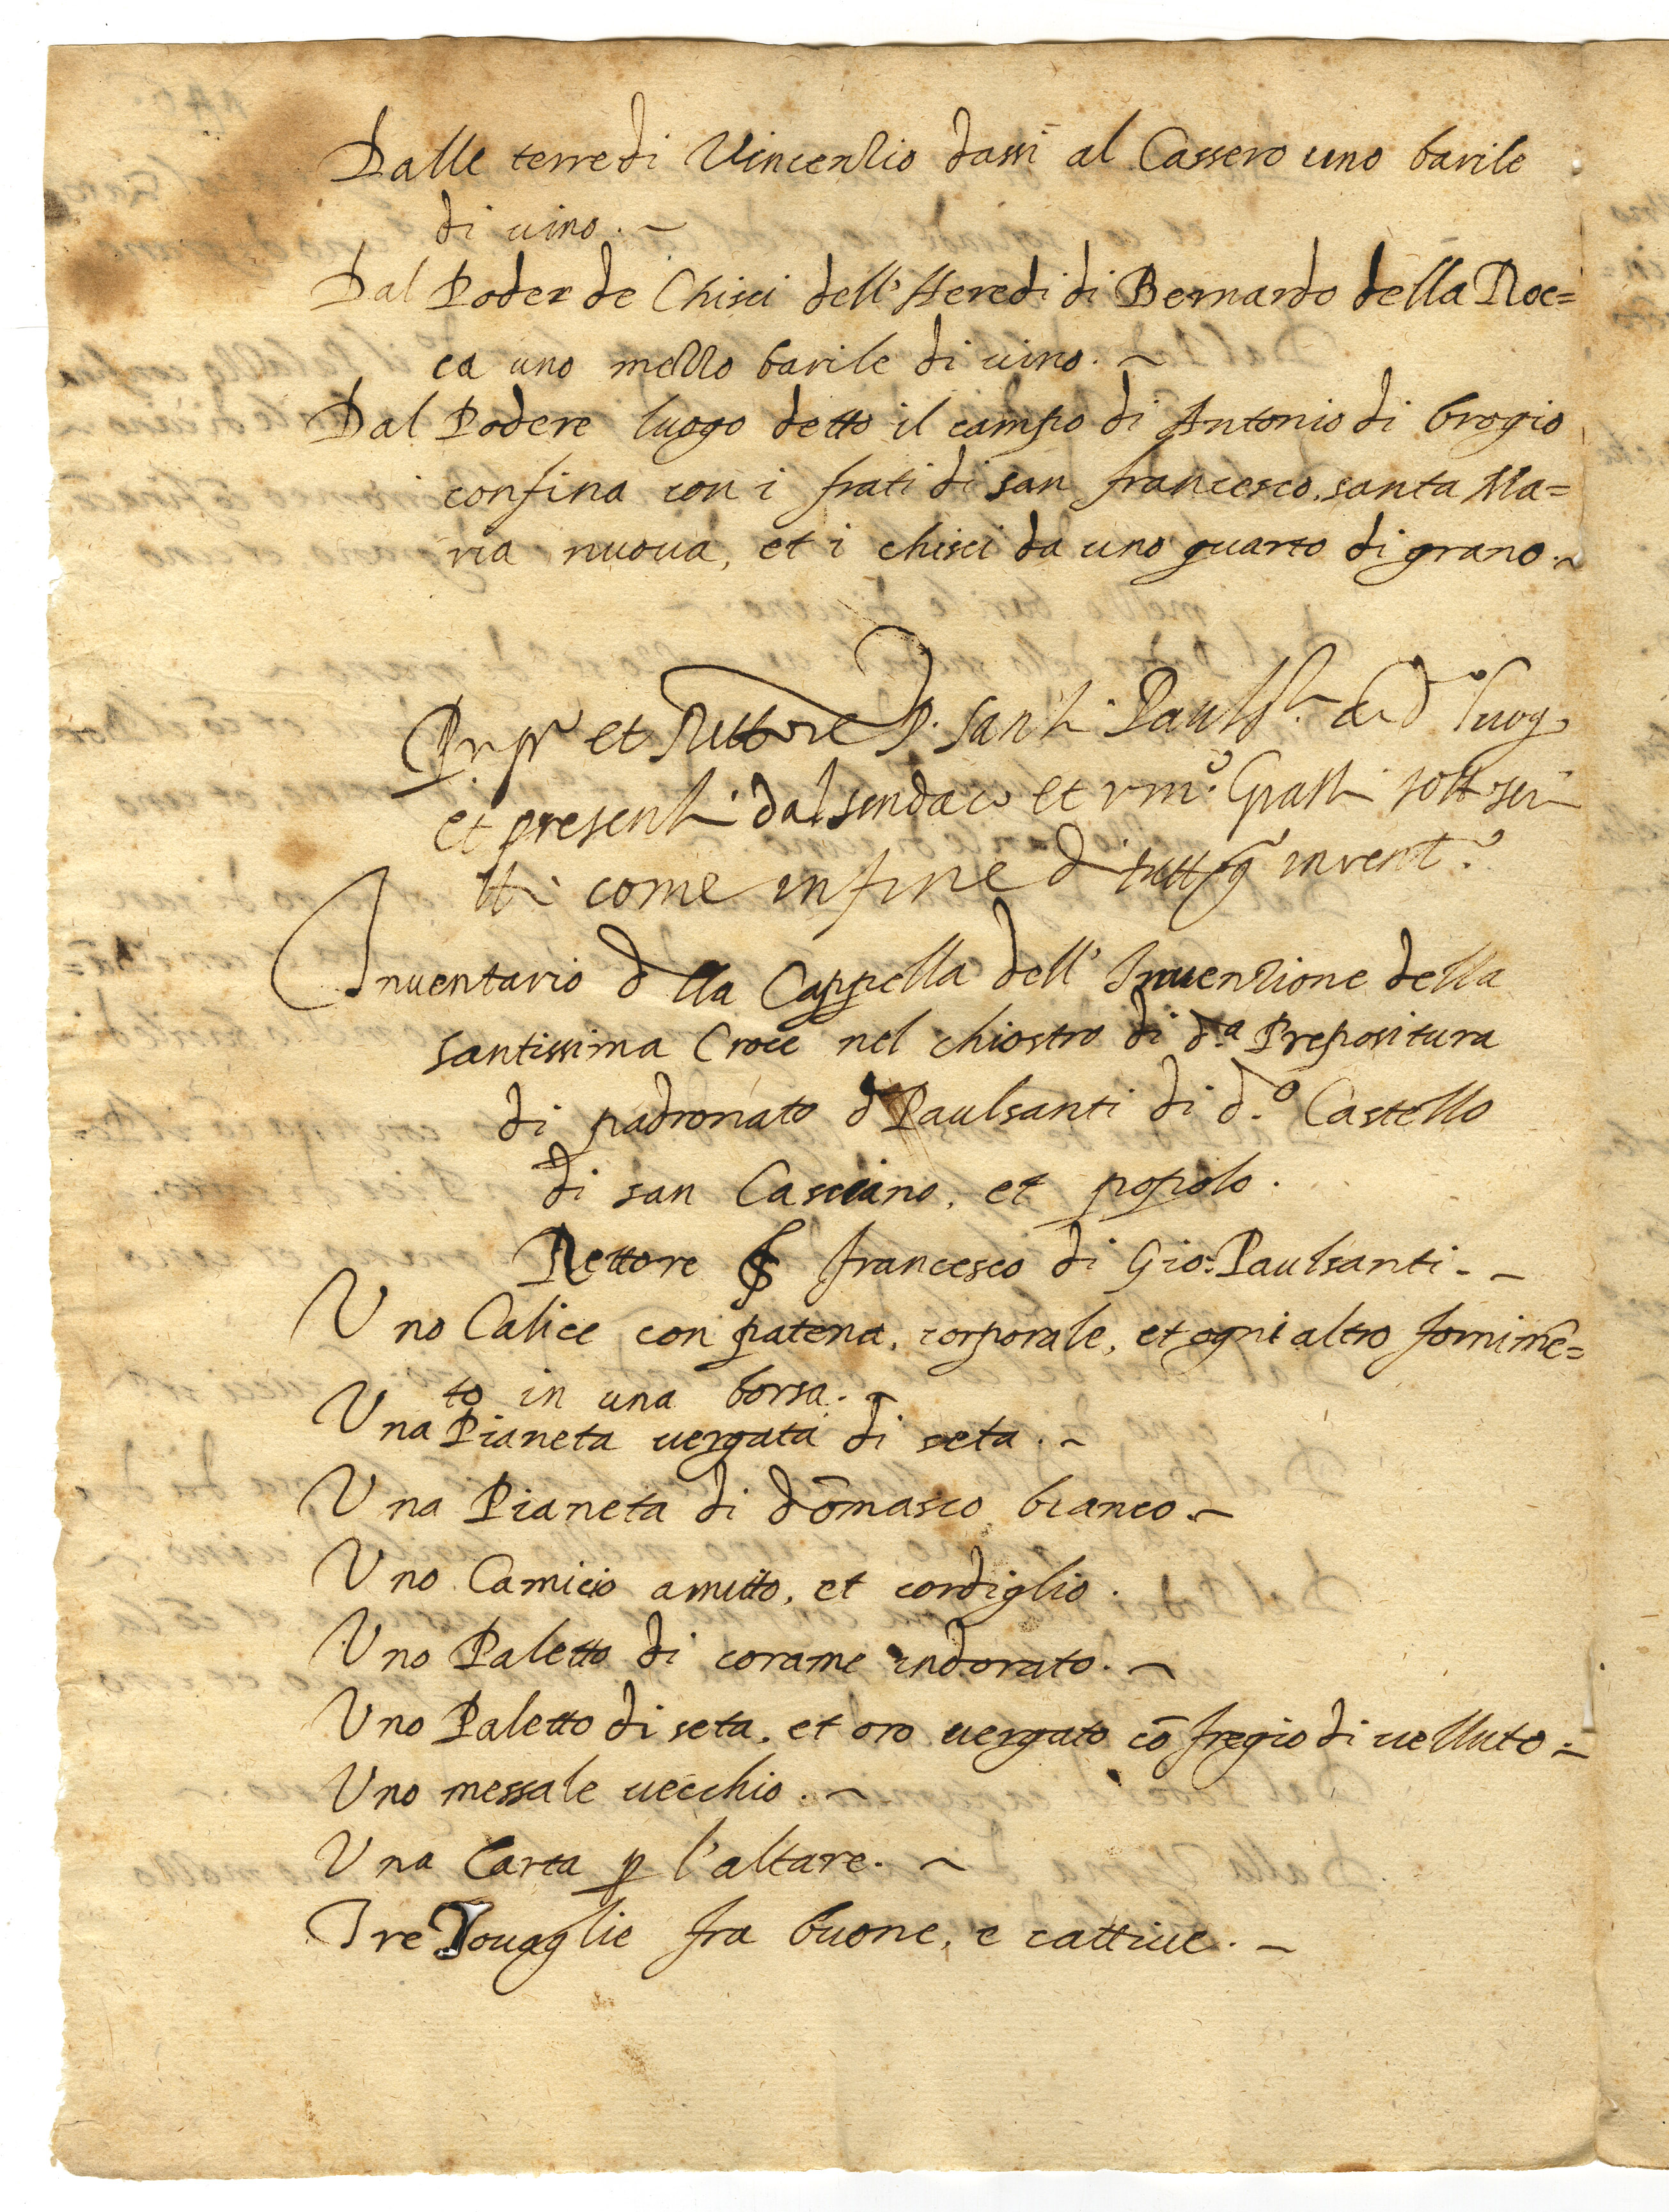 Dalle terre di Vincenzio dassi al Cassero uno barile
di uino. ~
Dal Poder de Chisci dell'Heredi di Bernardo della Roc=
ca uno mezzo barile di uino. ~
Dal Podere luogo detto il campo di Antonio di brogio
confina con i frati di san francesco, santa Ma=
ria nuoua, et i chisci da uno quarto di grano. ~
et Rettore Santi
et presenti dal sendaco et Grassi sottoscri
tti come in fine di invent.º
Inuentario della Cappella dell'Inuenzione della
santissima Croce nel chiostro di d.ª Prepositura
di padronato d Paulsanti di d.º Castello
di san Casciano, et popolo.
Rettore francesco di Gio: Paulsanti - ~
Uno Calice con patena, corporale, et ogni altro fornimē=
to in una borsa. ~
Una Pianeta uergata di seta. ~
Una Pianeta di domasco bianco. ~
Uno Camicio amitto, et cordiglio.
Uno Paletto di corame indorato. ~
Uno Paletto di seta, et oro uergato cō fregio di uelluto. ~
Uno messale uecchio. ~
Una Carta p l'altare. ~
Tre Touaglie fra buone, e cattiue. ~